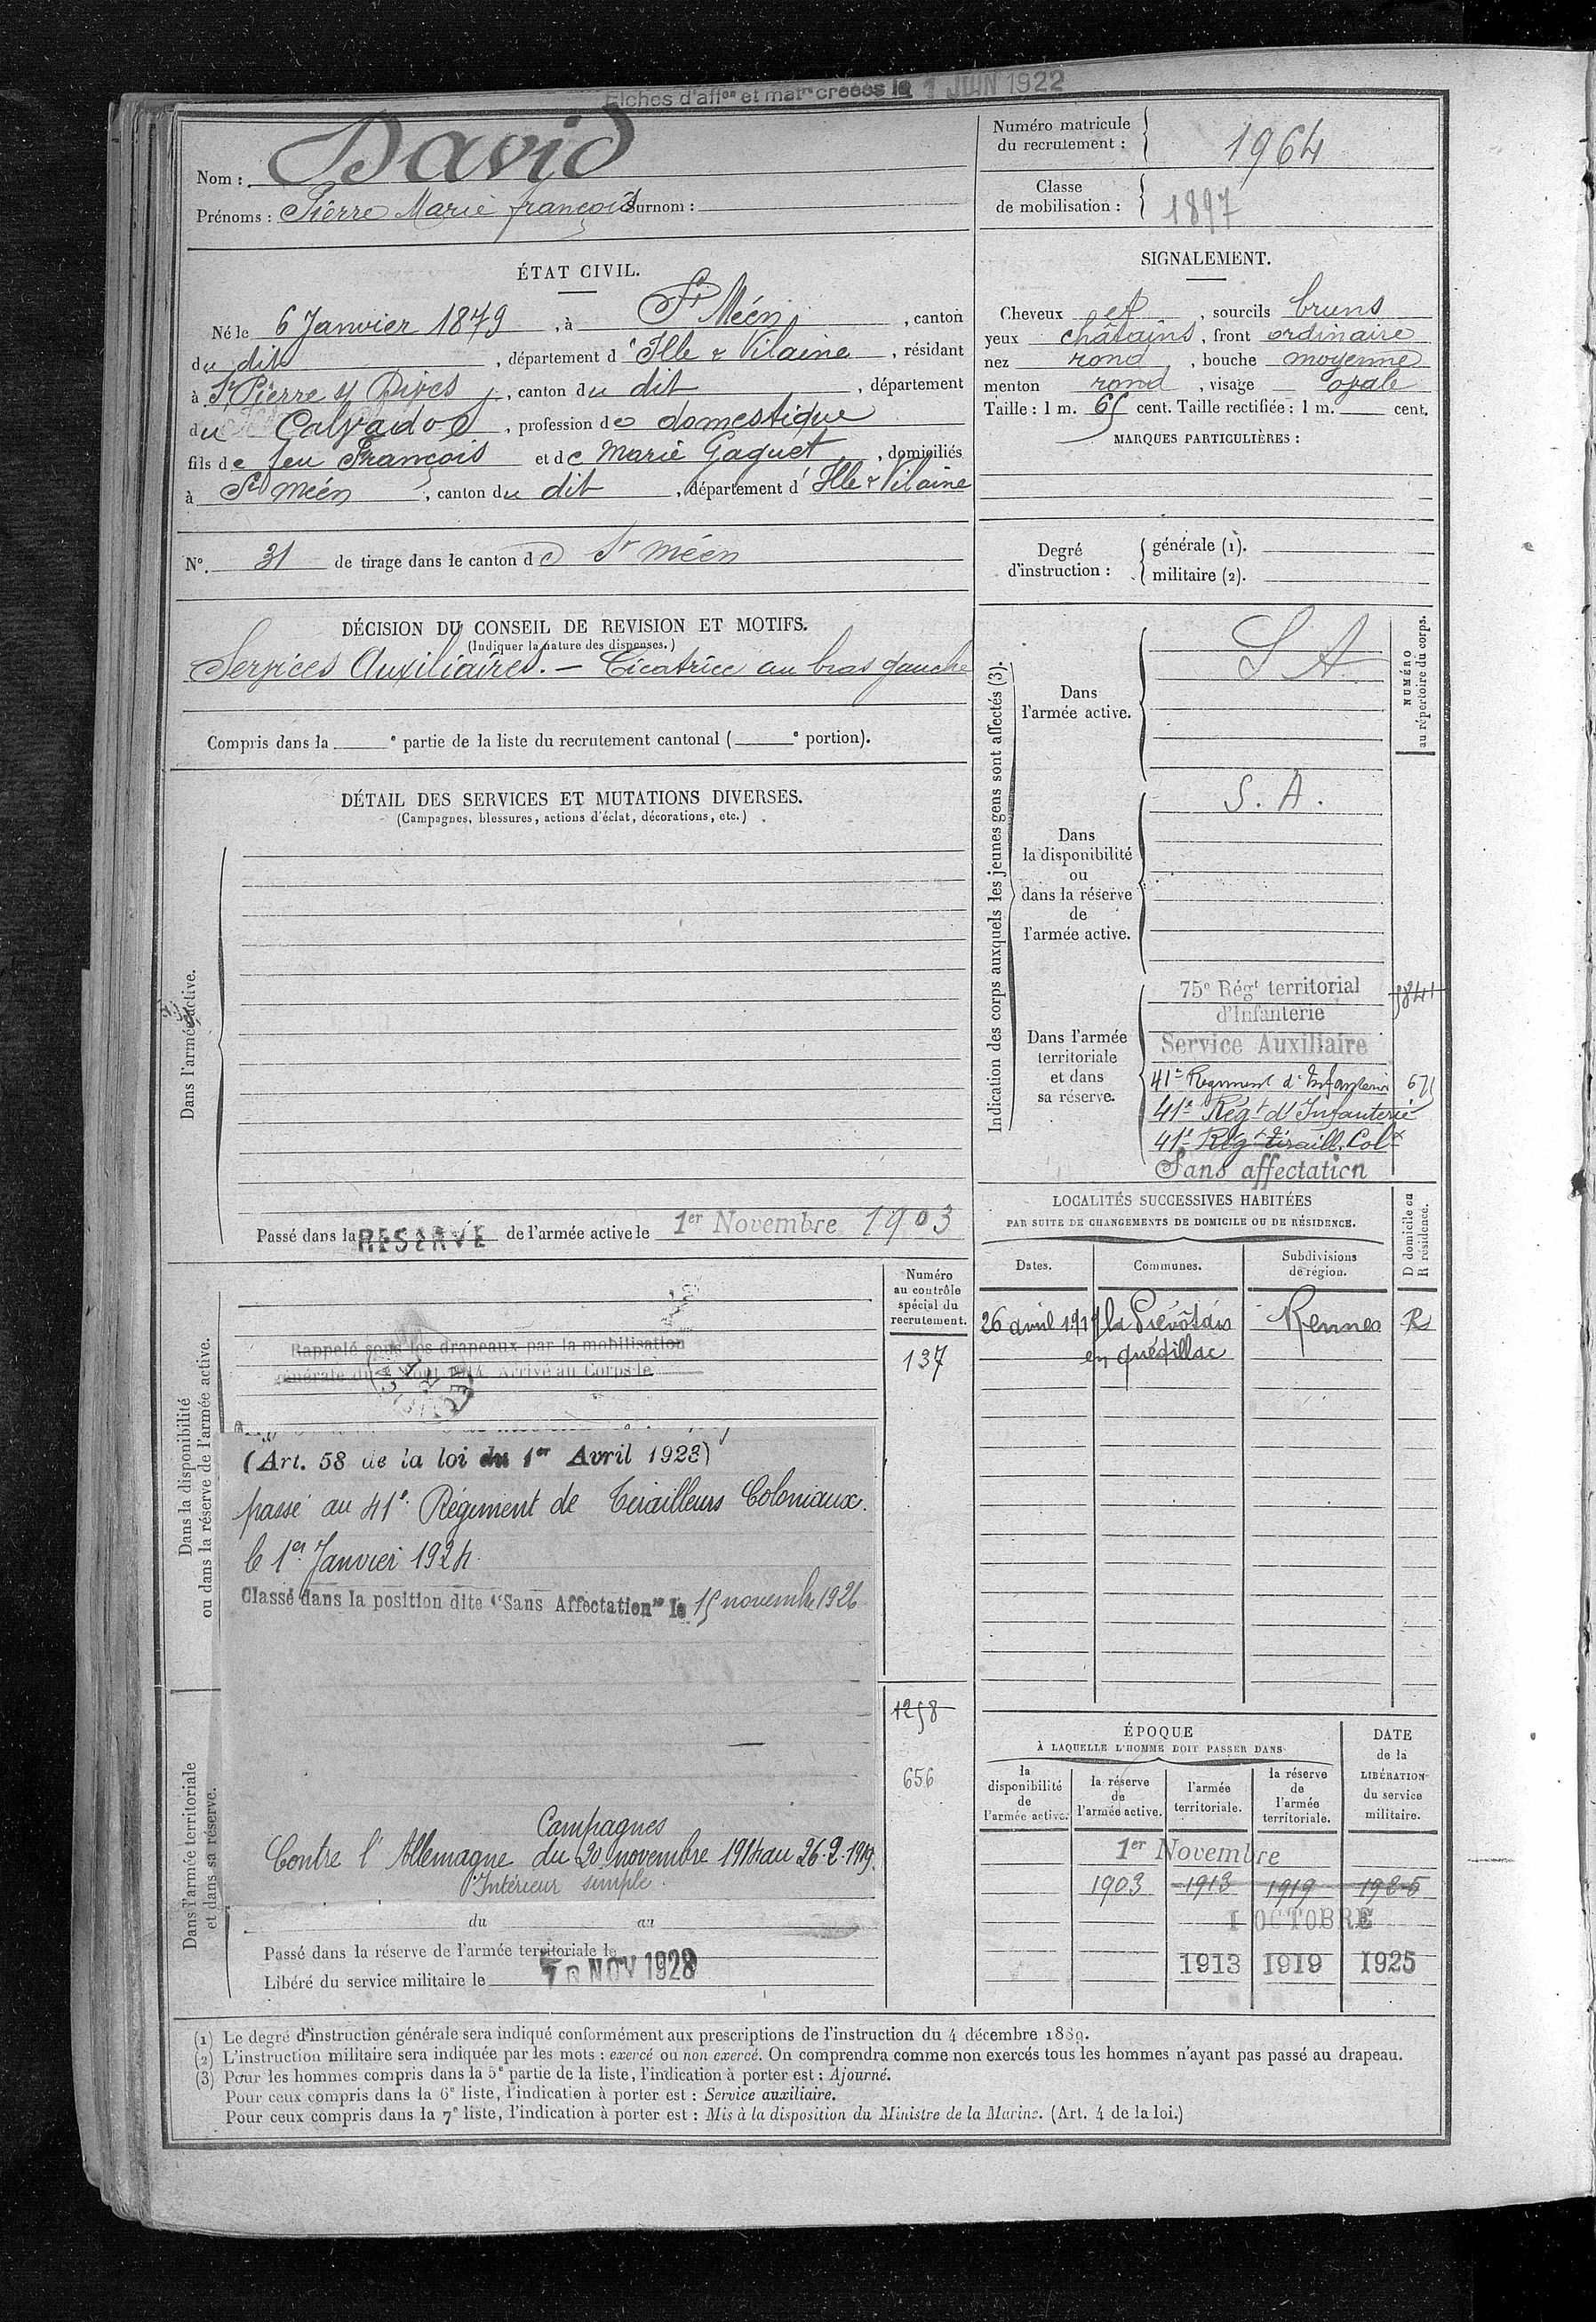 Fiches d'affon et matre creées le 1 JUIN 1922
Nom : David
Prénoms : Pierre Marie françois Surnom :
Numéro matricule du recrutement : 1964
Classe de mobilisation : 1897
ÉTAT CIVIL.
Né le 6 Janvier 1879, à St Méen, canton
du dit, département d'Ille & Vilaine, résidant
à St Pierre s/ Dives, canton du dit, département
du Calvados, profession de domestique
fils de feu François et de Marie Gaguet, domiciliés
à St Méen, canton du dit, département d'Ille & Vilaine
N°. 31 de tirage dans le canton de St Méen
SIGNALEMENT.
Cheveux et, sourcils bruns
yeux châtains, front ordinaire
nez rond, bouche moyenne
menton rond, visage ovale
Taille : 1 m. 65 cent. Taille rectifiée : 1 m. cent.
MARQUES PARTICULIÈRES :
Degré d'instruction :
générale (1).
militaire (2).
DÉCISION DU CONSEIL DE REVISION ET MOTIFS.
(Indiquer la nature des dispenses.)
Services Auxiliaires. — Cicatrice au bras gauche
Compris dans la e partie de la liste du recrutement cantonal ( e portion).
DÉTAIL DES SERVICES ET MUTATIONS DIVERSES.
(Campagnes, blessures, actions d'éclat, décorations, etc.)
Dans l'armée active.
Passé dans la RESERVE de l'armée active le 1er Novembre 1903
Indication des corps auxquels les jeunes gens sont affectés (3).
NUMÉRO
au répertoire du corps.
Dans l'armée active.
S A
Dans la disponibilité ou dans la réserve de l'armée active.
S. A.
Dans l'armée territoriale et dans sa réserve.
75e Régt territorial
d'Infanterie
Service Auxiliaire
41e Regiment d'Infanterie
41e Régt d'Infanterie
41e Régt tiraill. Colx
Sans affectation
LOCALITÉS SUCCESSIVES HABITÉES
PAR SUITE DE CHANGEMENTS DE DOMICILE OU DE RÉSIDENCE.
D domicile ou
R résidence.
Dates. Communes. Subdivisions de région.
26 avril 1919 la Prévôtais Rennes R
en quédillac
Dans la disponibilité
ou dans la réserve de l'armée active.
Numéro
au contrôle
spécial du
recrutement.
137
Rappelé sous les drapeaux par la mobilisation
générale du Arrivé au Corps le
(Art. 58 de la loi du 1er Avril 1923)
passé au 41e Régiment de Tirailleurs Coloniaux.
le 1er Janvier 1924.
Classé dans la position dite "Sans Affectation" le 15 novembre 1926
1258
656
Dans l'armée territoriale
et dans sa réserve.
Campagnes
Contre l'Allemagne du 20 novembre 1914 au 26.2.1919.
Intérieur simple.
du au
Passé dans la réserve de l'armée territoriale le
Libéré du service militaire le NOV 1928
ÉPOQUE
À LAQUELLE L'HOMME DOIT PASSER DANS
DATE
de la
LIBÉRATION
du service
militaire.
la disponibilité de l'armée active.
la réserve de l'armée active.
l'armée territoriale.
la réserve de l'armée territoriale.
1er Novembre
1903 1913 1919 1925
1 OCTOBRE
1913 1919 1925
(1) Le degré d'instruction générale sera indiqué conformément aux prescriptions de l'instruction du 4 décembre 1889.
(2) L'instruction militaire sera indiquée par les mots : exercé ou non exercé. On comprendra comme non exercés tous les hommes n'ayant pas passé au drapeau.
(3) Pour les hommes compris dans la 5e partie de la liste, l'indication à porter est : Ajourné.
Pour ceux compris dans la 6e liste, l'indication à porter est : Service auxiliaire.
Pour ceux compris dans la 7e liste, l'indication à porter est : Mis à la disposition du Ministre de la Marine. (Art. 4 de la loi.)